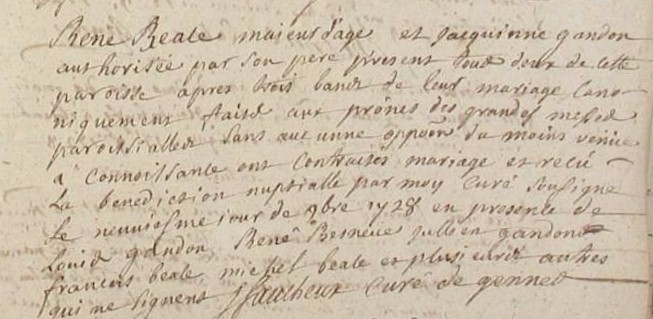 René Beale maieur d'age et Jacquinne gandon
authorisée par son pere present tous deux de cette
paroisse apres trois bands de leur mariage Cano-
niquement faits aux prônes des grandes messes
paroissialles sans aucunne oppoōn du moins venüe
a Connoissance ont Contractés mariage et recü
La benediction nuptialle par moy Curé soussigne
Le neuviesme iour de 9bre 1728 en presence de
Louis gandon René Besneue jullien gandon
francois beale, michel beale et plusieurs autres
qui ne signent Curé de gennes